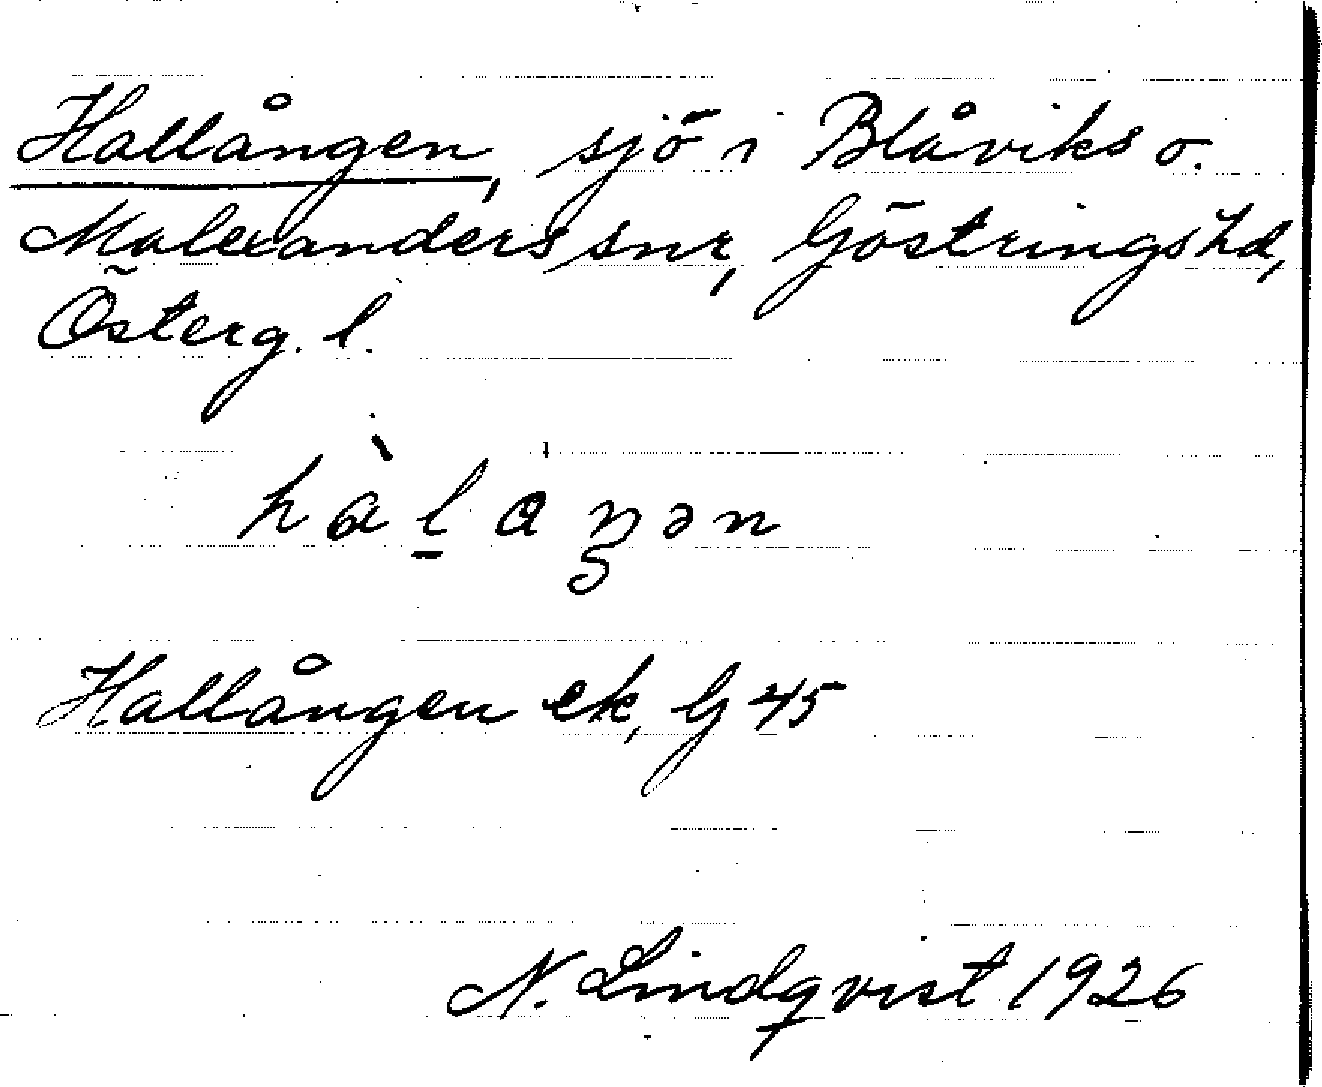 Hallången, sjö i Blåviks o.
Malexanders snr, Göstringshd,
Österg. l.
hàl̠aŋən
Hallången ek, G 45
N. Lindqvist 1926